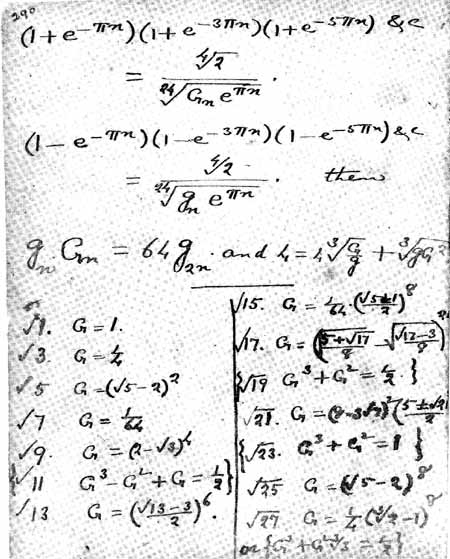 290
(1+e^{-πn})(1+e^{-3πn})(1+e^{-5πn}) &c
= ∜2 / ²⁴√(G_n e^{πn}) .
(1-e^{-πn})(1-e^{-3πn})(1-e^{-5πn}) &c
= ∜2 / ²⁴√(g_n e^{πn}) . then
g_n G_n = 64 g_{2n} . and
√1. G=1.
√3. G=¼
√5 G=(√5-2)²
√7 G=1/64
√9. G=(2-√3)⁴
{√11 G³-G²+G=½}
√13 G=((√13-3)/2)⁶.
√15. G=1/64.((√5±1)/2)⁸
√17. G=(√((5+√17)/8)-√((√17-3)/8))
{√19 G³+G²=½.}
√21. G=
{√23. G³+G²=1}
√25 G=(√5-2)⁸
√27 G=¼(∛2-1)⁸
or